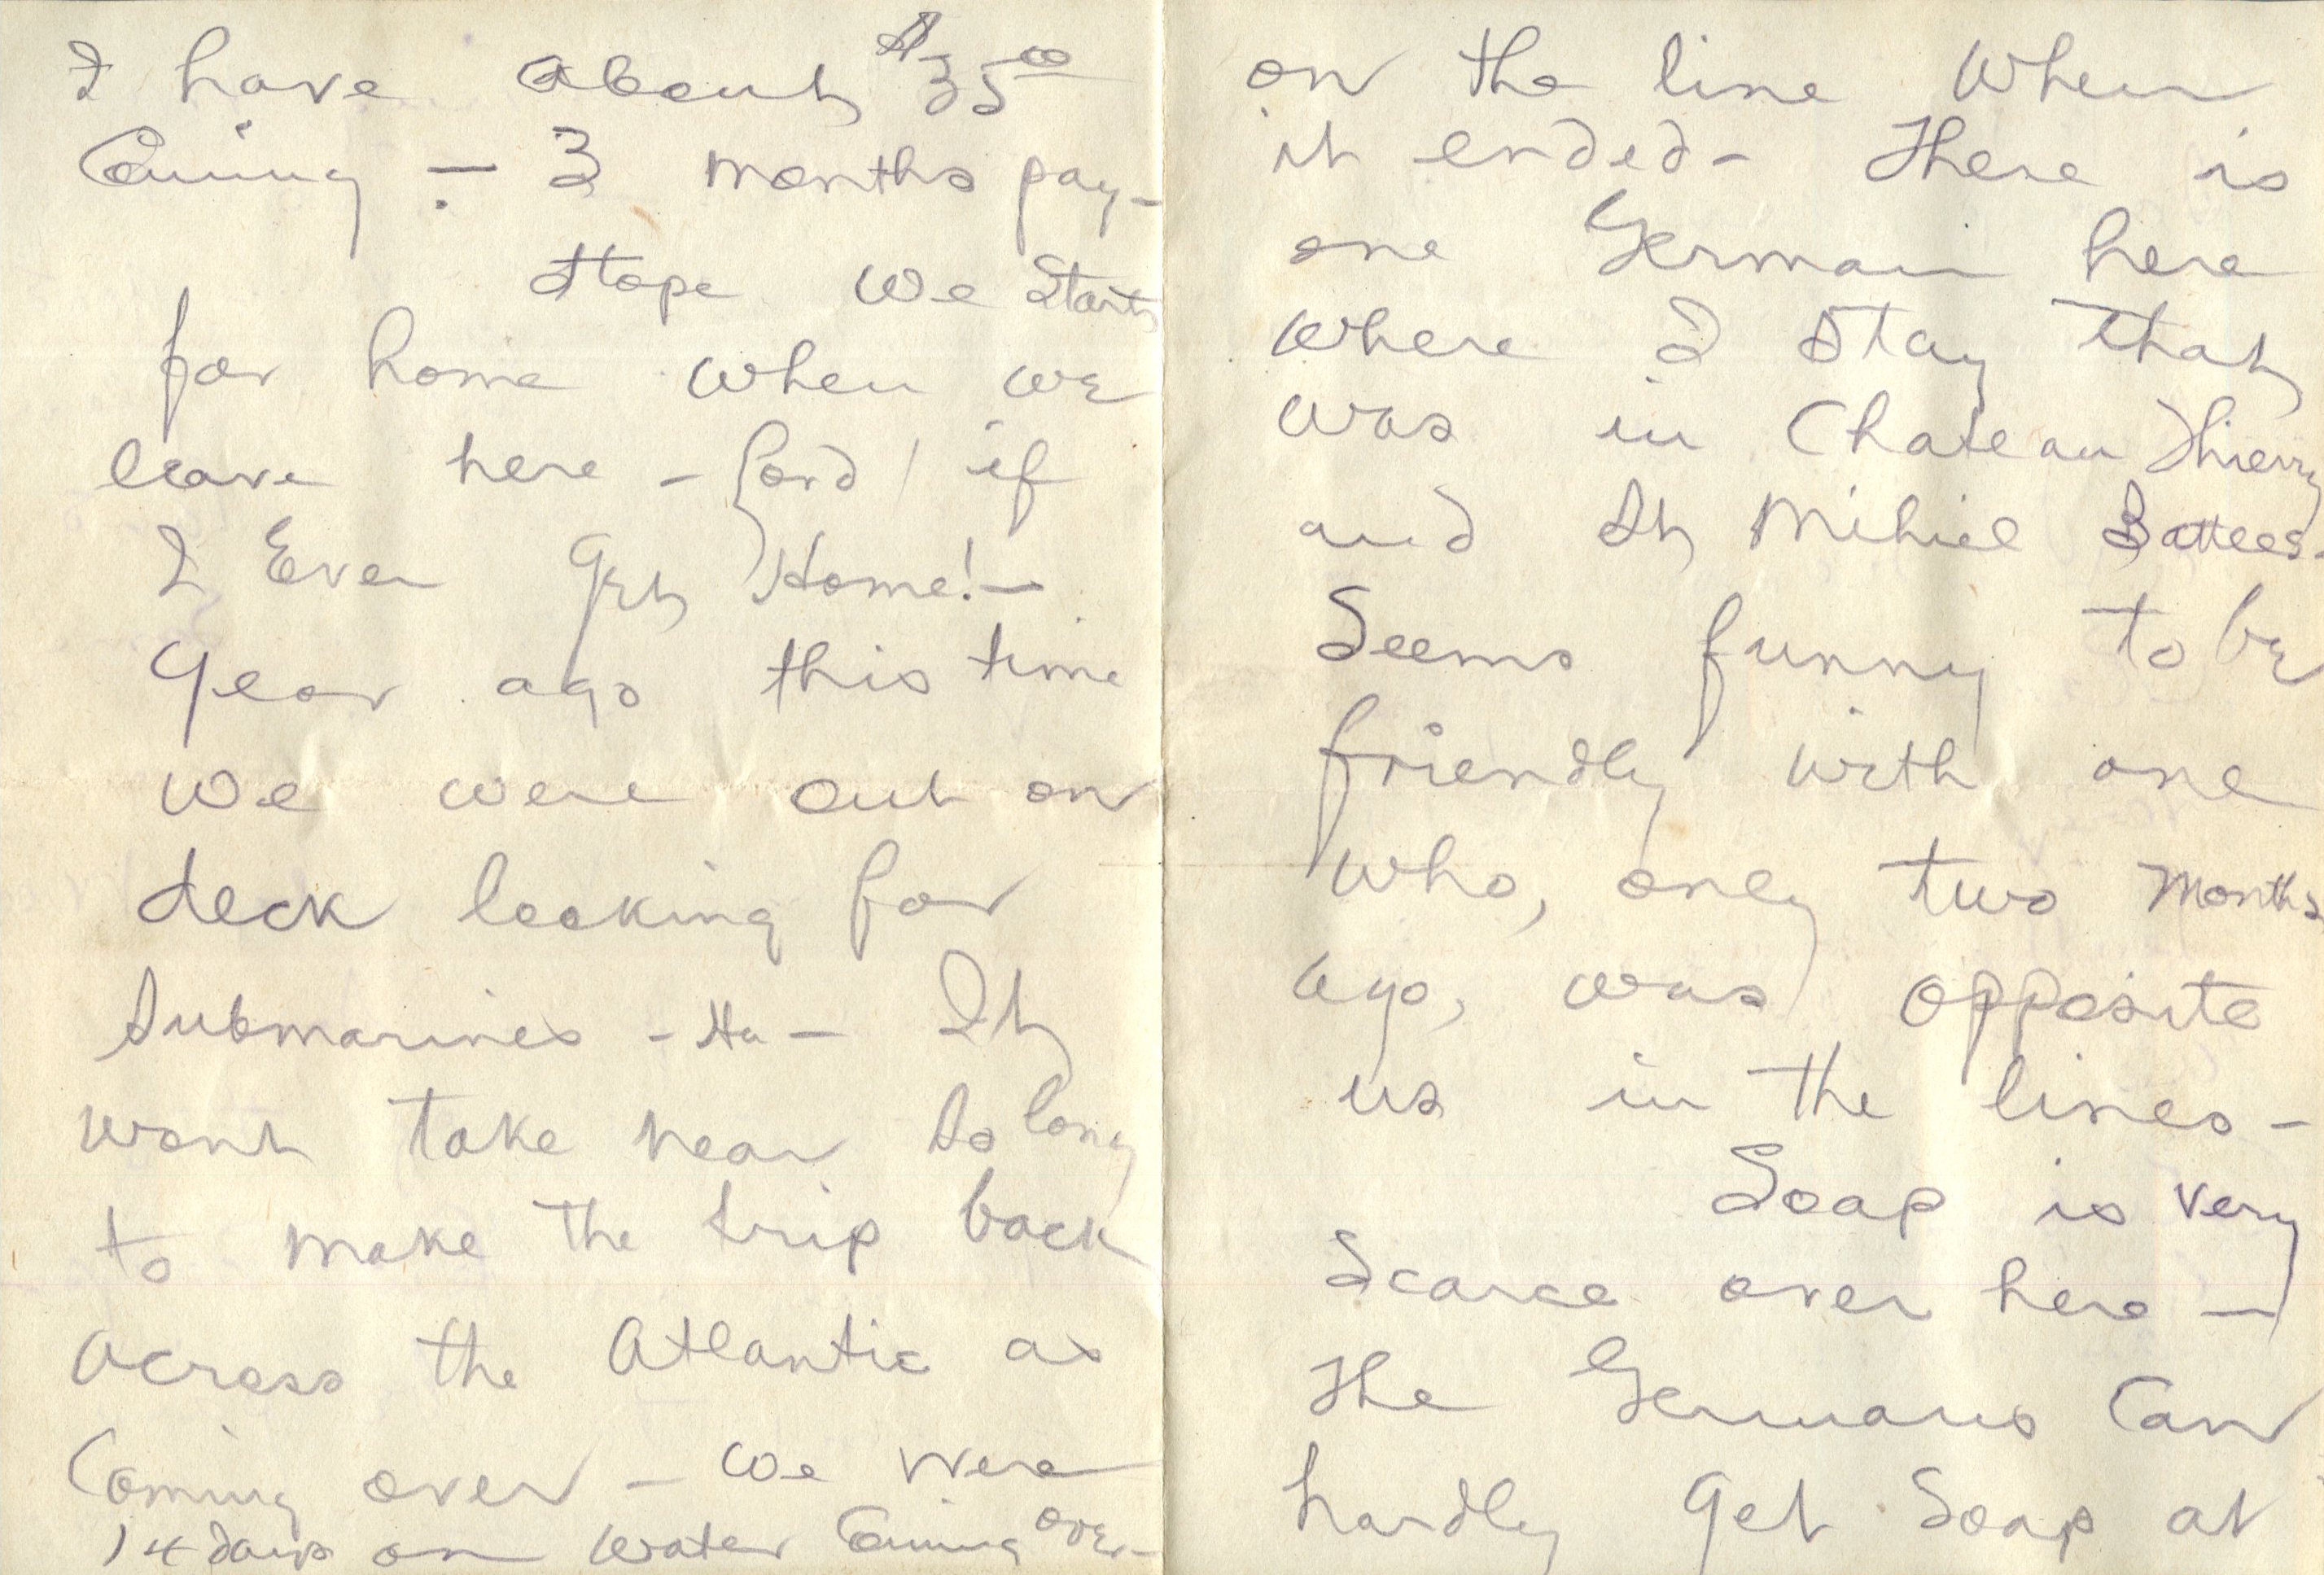 I have about $3500
Coming - 3 months pay-
Hope we Start
for home when we
leave here - Lord! if
I Ever Get Home! -
Year ago this time
we were out on
deck looking for
Submarines - Ha - It
wont take near so long
to make the trip back
across the Atlantic as
Coming over - we were
14 days on water Coming over-
on the line when
it ended - There is
one German here
where I stay that
was in Chateau Thierry
and St Mihiel Battles-
Seems funny to be
friendly with one
who, only two months
ago, was opposite
us in the lines -
Soap is very
Scarce over here -
The Germans Can
hardly get Soap at